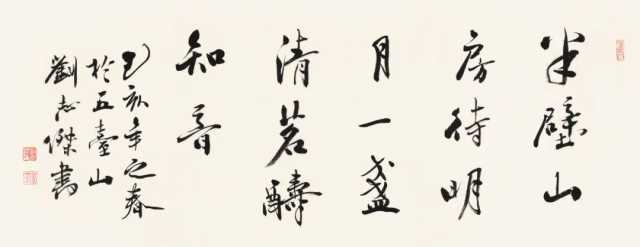 半壁山
房待明
月一盏
清茗酬
知音
己亥年之春
於五臺山
劉志傑書